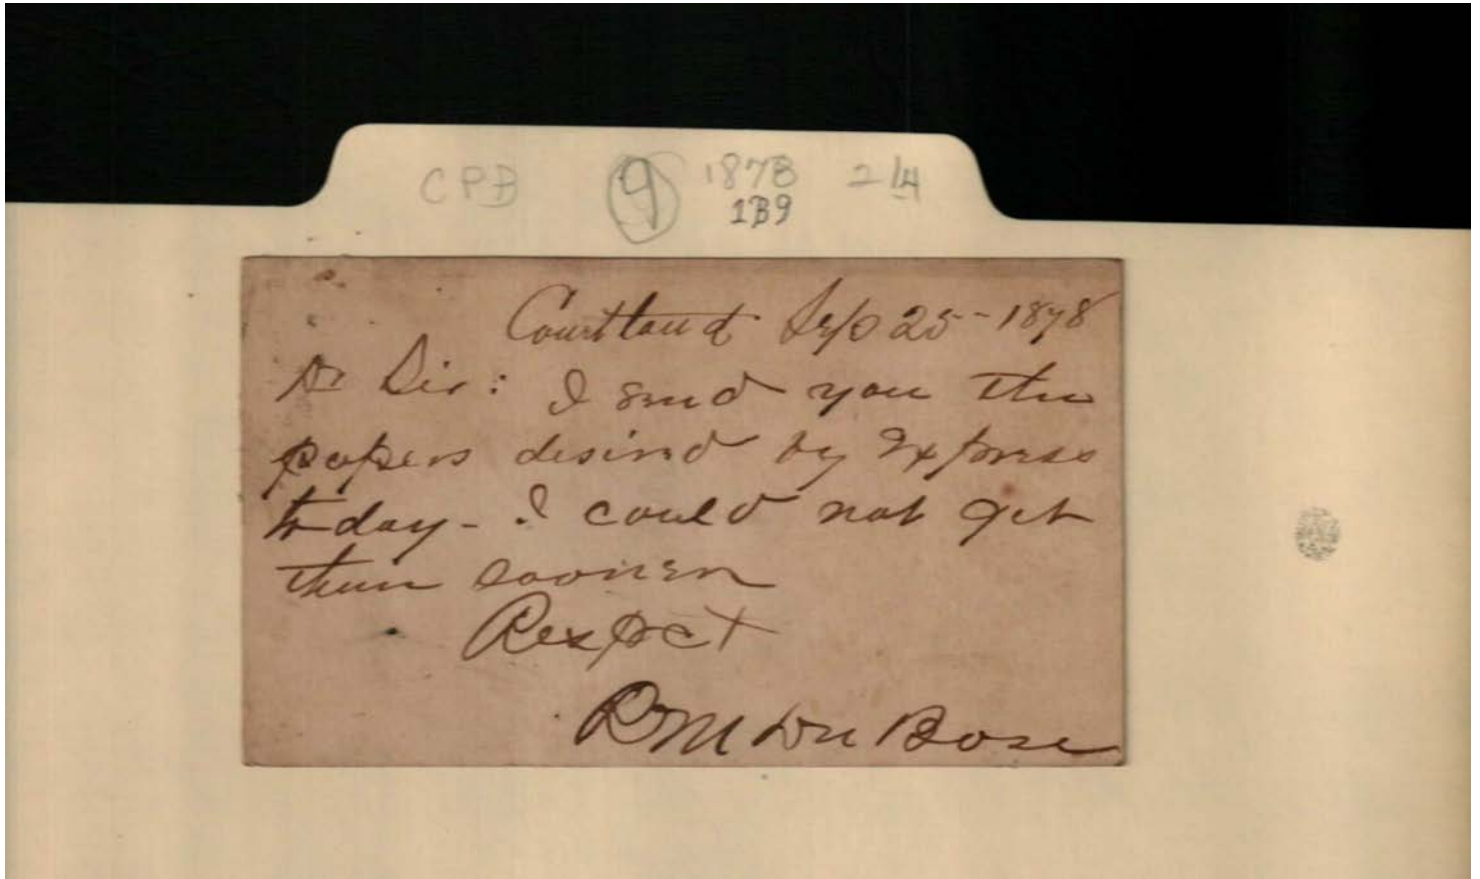 CPB 9 1878 2/4
1B9
Courtland Sep 25-1878
Dr Sir: I send you the
papers desired by Express
to day- I could not get
them sooner
Respect
RM Du Bose